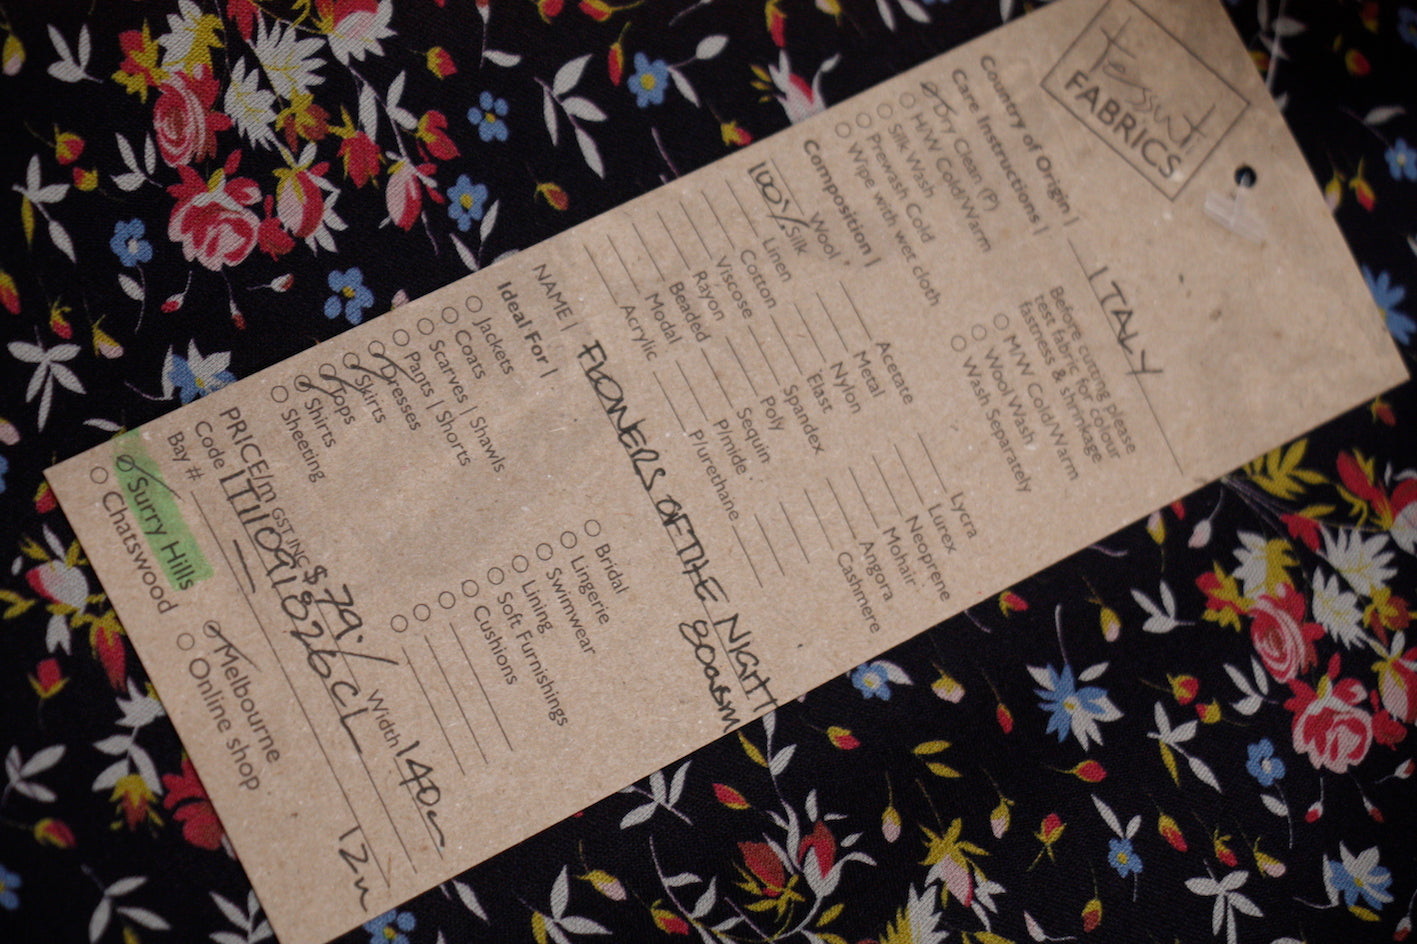 Tessuti
FABRICS
Country of Origin | ITALY
Care Instructions |
Dry Clean (P)
H/W Cold/Warm
Silk Wash
Prewash Cold
Wipe with wet cloth
Before cutting please
test fabric for colour
fastness & shrinkage
M/W Cold/Warm
Wool Wash
Wash Separately
Composition |
Wool Acetate Lycra
100% Silk Metal Lurex
Linen Nylon Neoprene
Cotton Elast Mohair
Viscose Spandex Angora
Rayon Poly Cashmere
Beaded Sequin
Modal P/mide
Acrylic P/urethane
NAME | FLOWERS OF THE NIGHT
Ideal For |
Jackets
Coats
Scarves | Shawls
Pants | Shorts
Dresses
Skirts
Tops
Shirts
Sheeting
Bridal
Lingerie
Swimwear
Lining
Soft Furnishings
Cushions
PRICE/m GST INC $79./ Width 140
Code
Bay #
12m
Surry Hills Melbourne
Chatswood Online shop